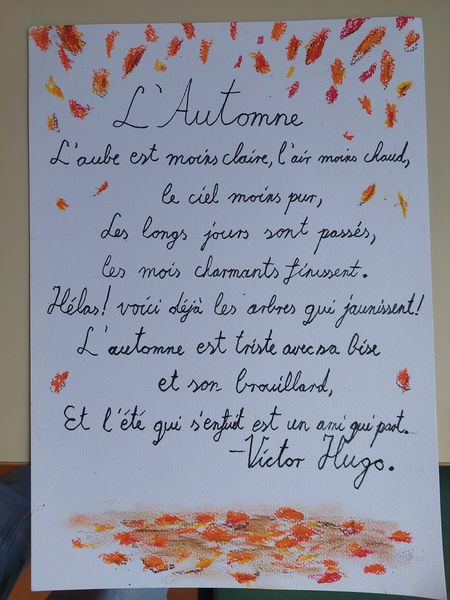 L'Automne
L'aube est moins claire, l'air moins chaud,
le ciel moins pur,
Les longs jours sont passés,
les mois charmants finissent.
Hélas! voici déjà les arbres qui jaunissent!
L'automne est triste avec sa bise
et son brouillard,
Et l'été qui s'enfuit est un ami qui part.
-Victor Hugo.